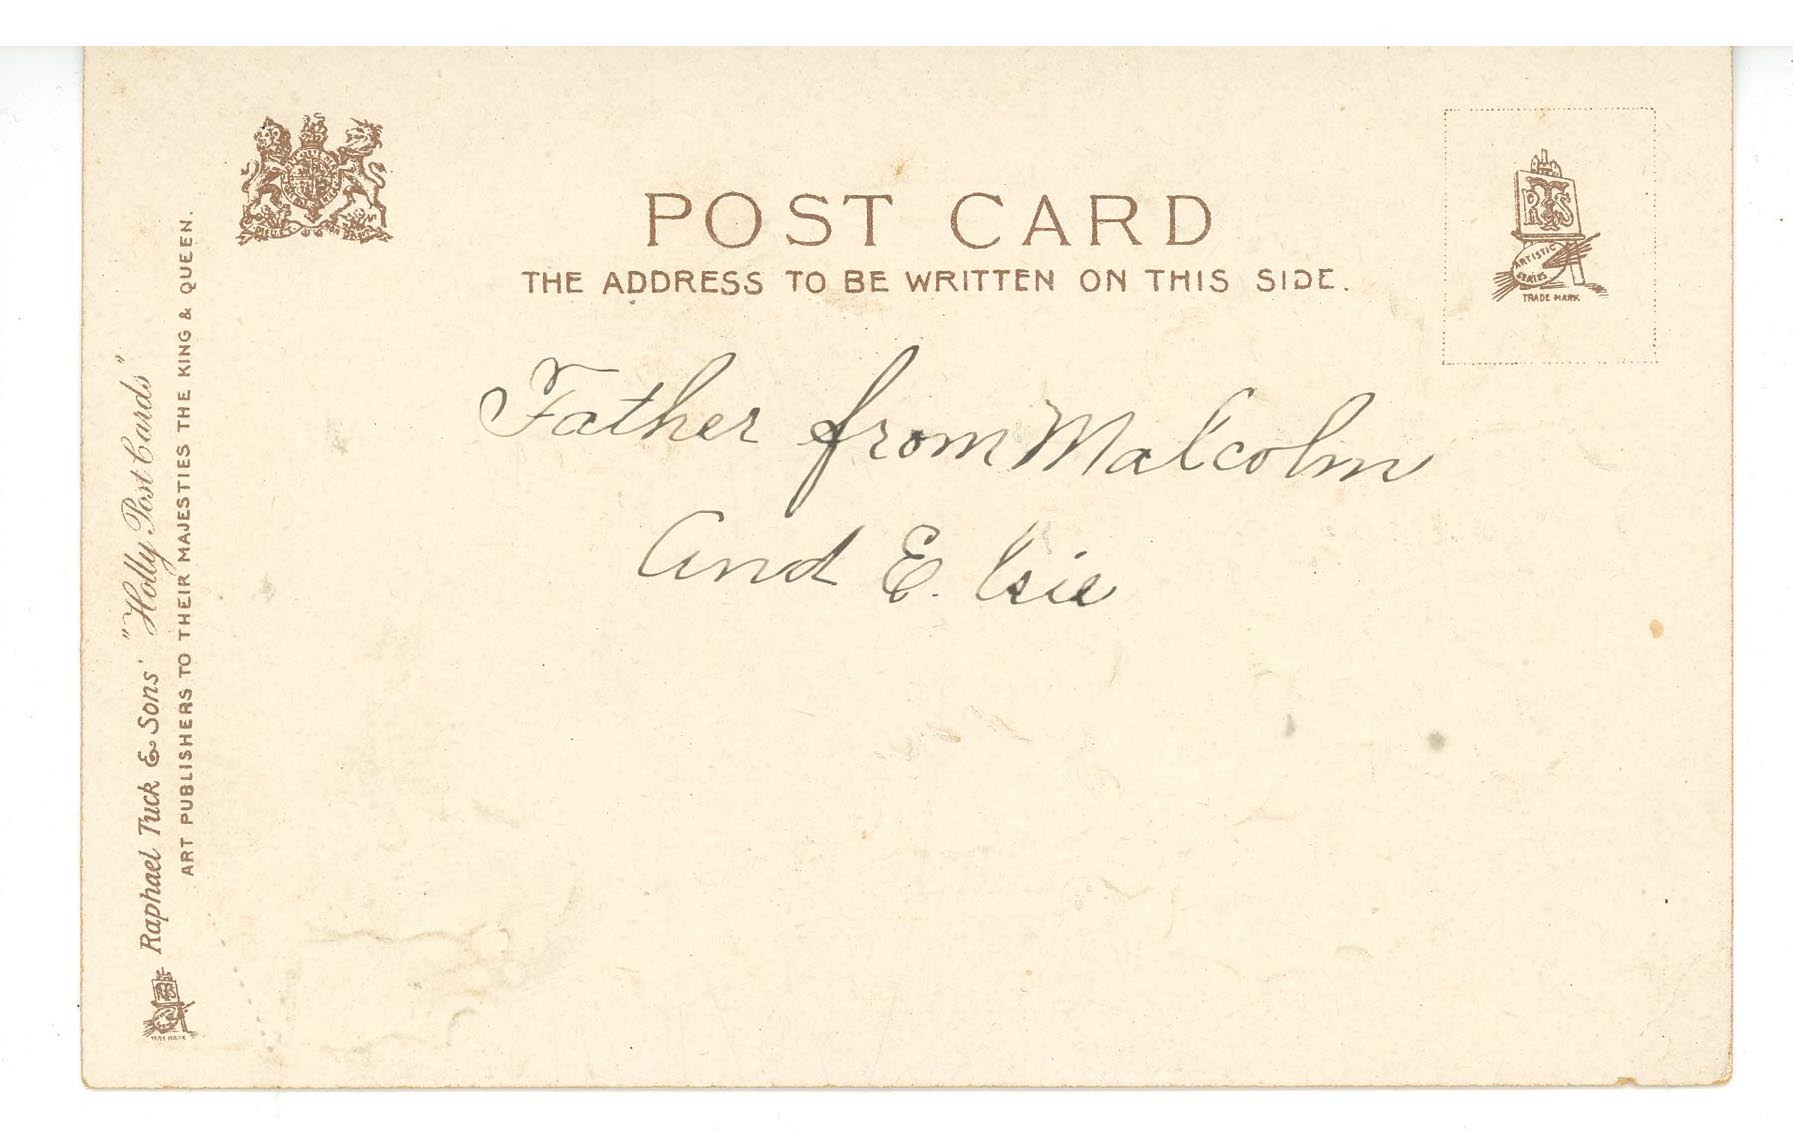 POST CARD
THE ADDRESS TO BE WRITTEN ON THIS SIDE.
RTS
ARTISTIC
SERIES
TRADE MARK
Father from Malcolm
and E. lsie
Raphael Tuck & Sons' "Holly Post Cards"
ART PUBLISHERS TO THEIR MAJESTIES THE KING & QUEEN.